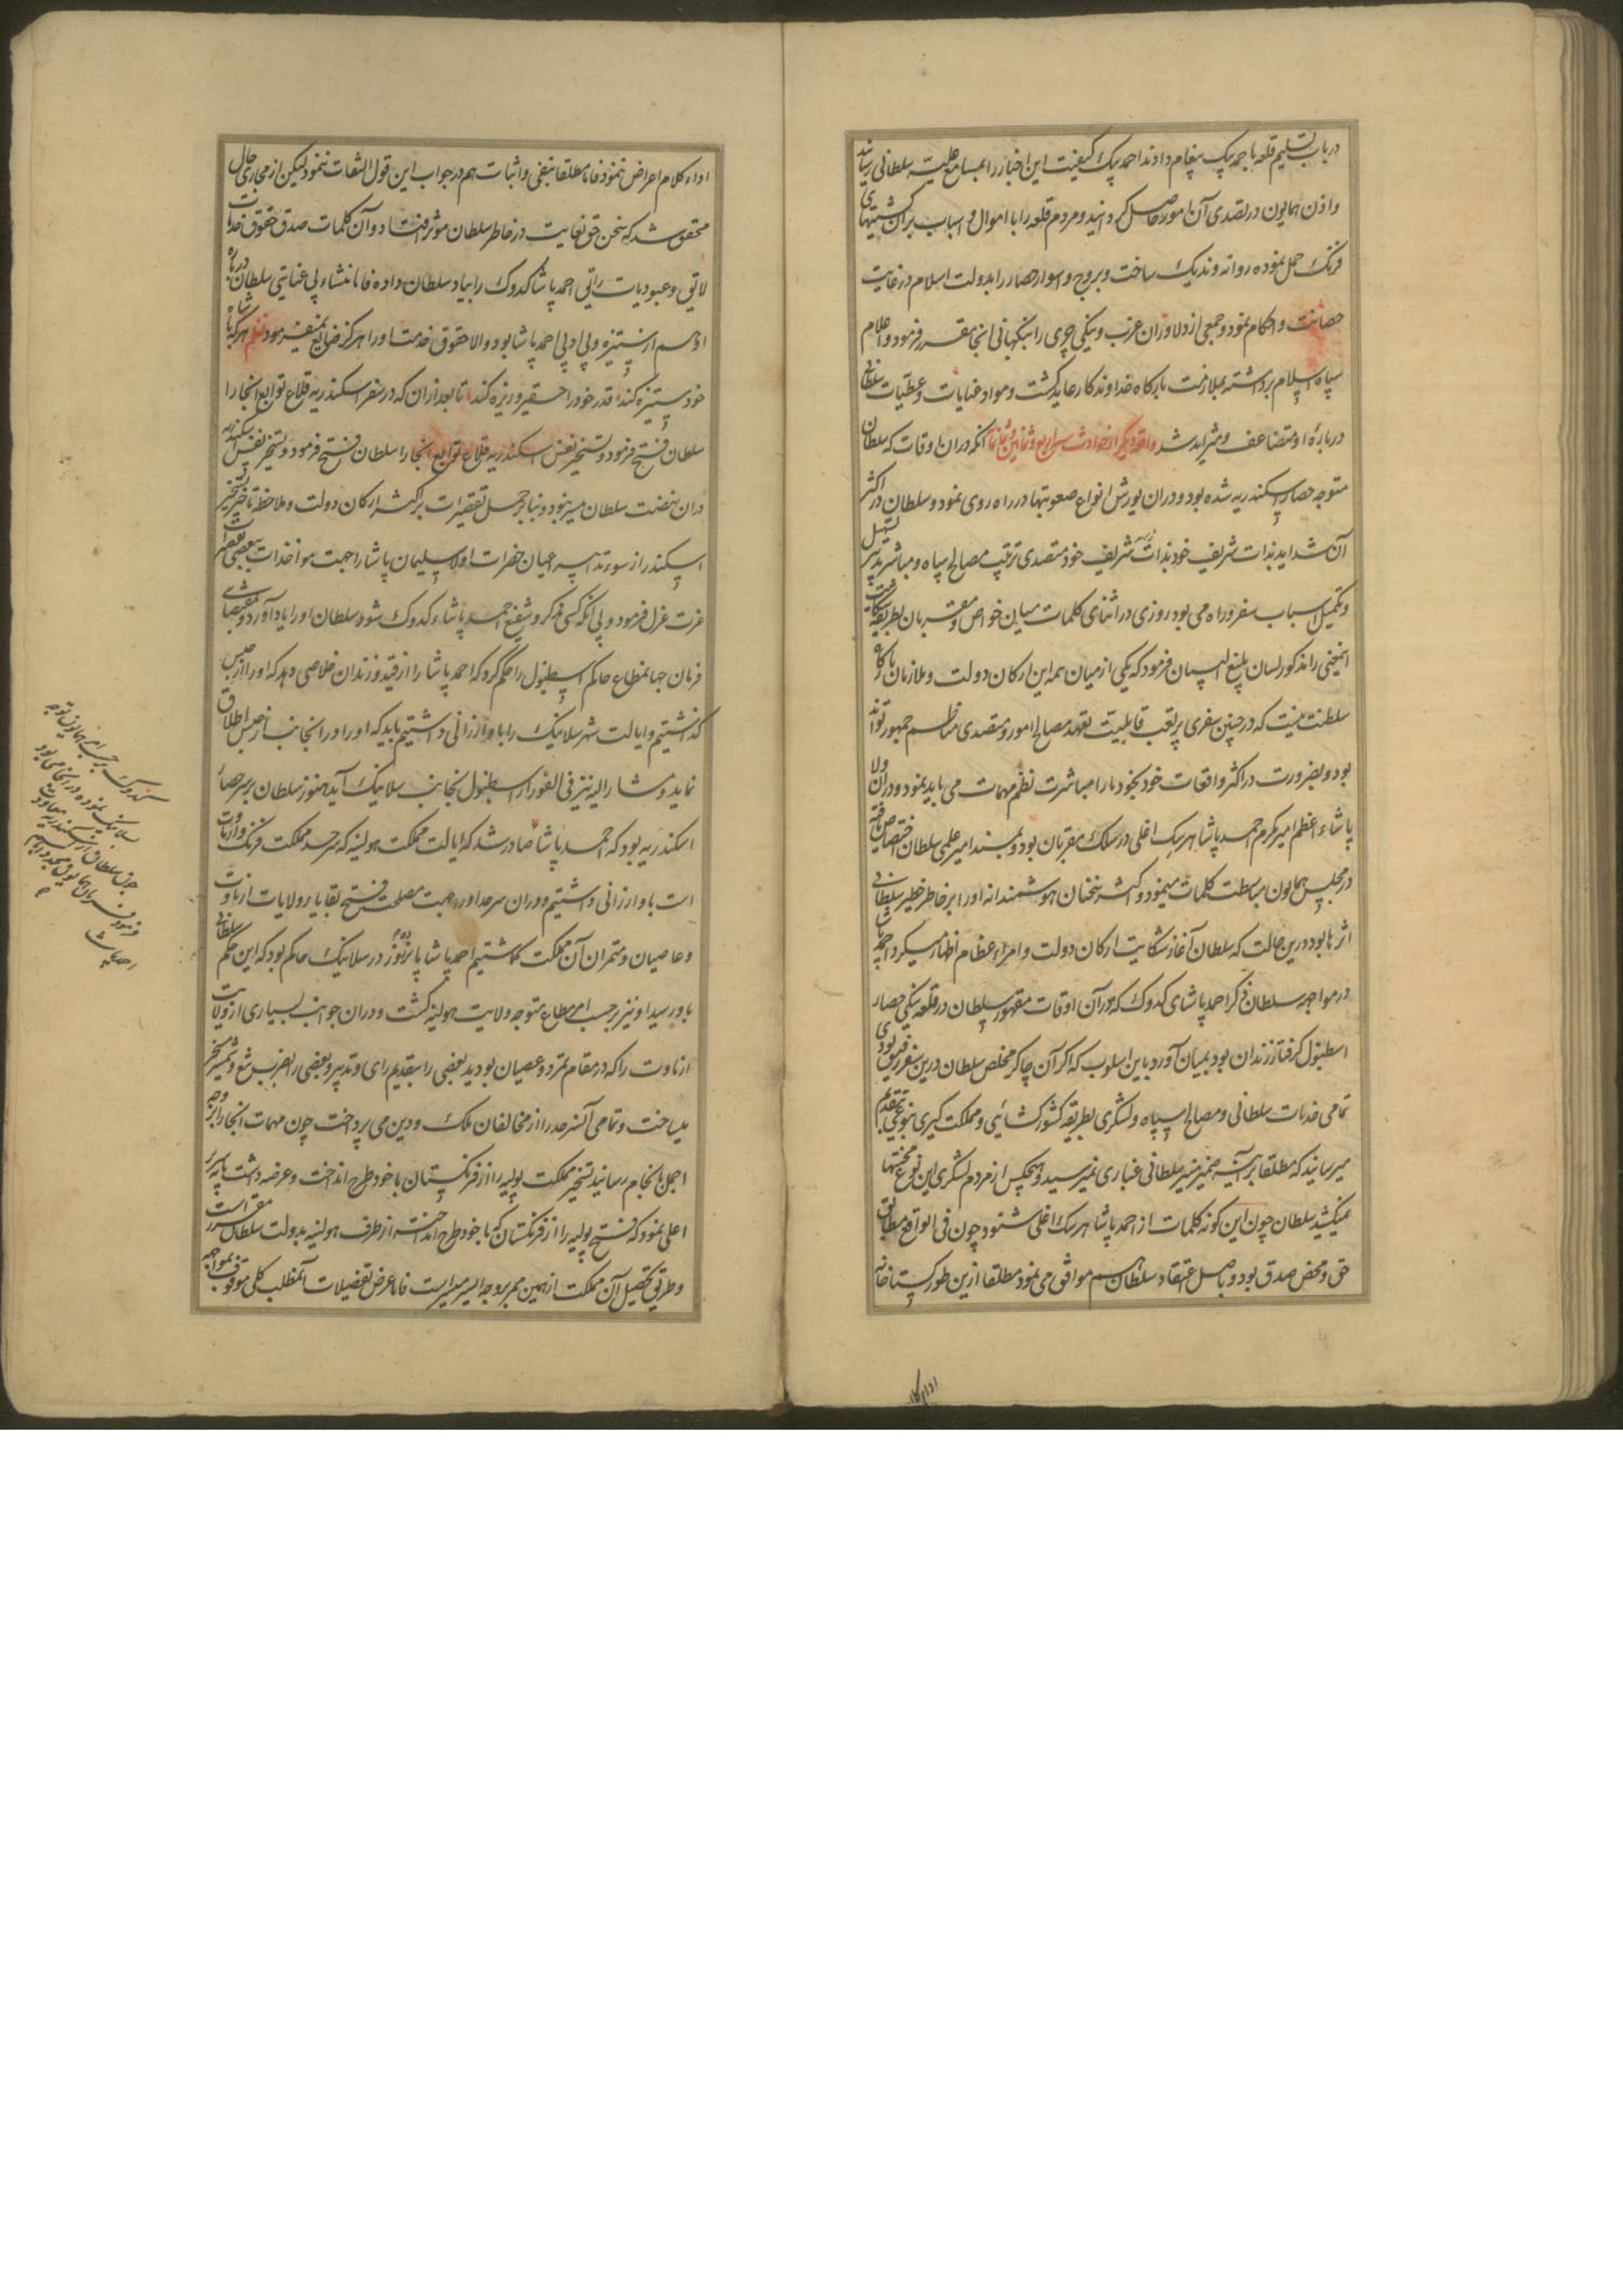 در باب تسلیم قلعه باحمد پیک پیغام دادند احمد پیک کیفیت این اخبار را بمسامع علیه سلطانی رسانید
و اذن همایون در تصدی آن امور حاصل گردانید و مردم قلعه را با اموال و اسباب بران کشتیهای
فرنک حمل نموده روانه وندیک ساخت و بروج و اسوار حصار را بدولت اسلام در غایت
حصانت و احکام نمود و جمعی از دلاوران عزب و ینکی چری را بنکهبانی انجا مقرر فرمود و اعلام
سپاه اسلام برداشته بملازمت بارکاه خداوندکار عاید کشت و مواد عنایات و عطیات سلطانی
درباره او متضاعف و متزاید شد واقعه دیکر از حوادث سنه اربع و ثمانین و ثمانمائه انکه دران اوقات که سلطان
متوجه حصار اسکندریه شده بود و دران یورش انواع صعوبتها در راه روی نمود و سلطان در اکثر
آن شداید بذات شریف خود بذات شریف خود متصدی ترتیب مصالح سپاه و مباشر تدبیر تسهیل
و تکمیل اسباب سفر و راه می بود روزی در اثنای کلمات میان خواص و مقربان بطریقه شکایت
اینمعنی را مذکور لسان بلیغ البیان فرمود که یکی از میان همه این ارکان دولت و ملازمان بارکاه
سلطنت نیست که در چنین سفری پر تعب قابلیت تعهد مصالح امور و متصدی مناظم جمهور تواند
بود و بضرورت در اکثر واقعات خود بخود ما را مباشرت نظم مهمات می باید نمود و دران ولا
پاشاء اعظم امیر مکرم احمد پاشا هرسک اغلی در سلک مقربان بود و بمسند امیر علمی سلطان اختصاص یافته
در مجلس همایون مباسطت کلمات مینمود و اکثر سخنان هوشمندانه او را بر خاطر خطیر سلطانی
اثرها بود درین حالت که سلطان آغاز شکایت ارکان دولت و امراء عظام اظهار میکرد احمد پاشا
در مواجهه سلطان ذکر احمد پاشای کدوک که دران اوقات مقهور سلطان در قلعه ینکی حصار
اسطنبول کرفتار زندان بود بمیان آورد باین اسلوب که اکر آن چاکر مخلص سلطان درین سفر رفیق بودی
تمامی خدمات سلطانی و مصالح سپاه و لشکری بطریقه کشورکشائی و مملکت کیری بنوعی بتقدیم
میرسانید که مطلقا بر آینه ضمیر منیر سلطانی غباری نمیرسید و هیچکس از مردم لشکری این نوع محنتها
نمیکشید سلطان چون این کونه کلمات از احمد پاشا هرسک اغلی شنود چون فی الواقع مطابق
حق و محض صدق بود و باصل اعتقاد سلطان هم موافق می نمود مطلقا ازین طور کستاخانه
اداء کلام
اداء کلام اعراض ننمود فاما مطلقا بنفی و اثبات هم در جواب این قول التفات ننمود لیکن از مجاری حال
محقق شد که سخن حق بغایت در خاطر سلطان مؤثر افتاد و آن کلمات صدق حقوق خدمات
لایق و عبودیات راتق احمد پاشا کدوک را بیاد سلطان داده فاما منشاء بی عنایتی سلطان درباره
او هم از ستیزه و بی ادبی احمد پاشا بود والا حقوق خدمت او را هرکز ضایع نمیفرمود نظم هرکه با شاه
خود ستیزه کند قدر خود را حقیر و ریزه کند تا بعد ازان که در سفر اسکندریه قلاع توابع انجا را
سلطان فتح فرمود و تسخیر نفس اسکندریه قلاع توابع انجا را سلطان فتح فرمود و تسخیر نفس اسکندریه
دران نهضت سلطان میسر نبود و بنا بر حمل تقصیرات بر اکثر ارکان دولت و ملاحظه تاخیر تسخیر
اسکندر از سوء تدابیر اعیان حضرات اولا سلیمان پاشا را جهت مواخذات ببعضی تقصیرات
عزت عزل فرمود و بی انکه کسی ذکر و شفیع احمد پاشاء کدوک شود سلطان او را یاد آورد و بمقتضای
فرمان جهانمطاع حاکم اسطنبول را حکم کرد که احمد پاشا را از قید و زندان خلاصی دهد که او را از حبس
کذاشتیم و ایالت شهر سلانیک را باو ارزانی داشتیم باید که او را در انجانب از حبس اطلاق
نماید و مشار الیه نیز فی الفور از اسطنبول بجانب سلانیک آید هنوز سلطان بر سر حصار
اسکندریه بود که باحمد پاشا صادر شد که ایالت مملکت هولنیه که سرحد مملکت فرنک و ارناوت
است باو ارزانی داشتیم و دران سرحد او را جهت مصلحت فتح بقایا ولایات ارناوت
و عاصیان و متمردان آن مملکت کماشتیم احمد پاشا پانزده روز در سلانیک حاکم بود که این حکم سلطانی
باو رسید او نیز برحسب امر مطاع متوجه ولایت هولنیه کشت و دران جوانب بسیاری از ولایت
ارناوت را که در مقام تمرد و عصیان بودند بعضی را بتقدیم رای و تدبیر و بعضی را بضرب تیغ و شمشیر مسخر
میساخت و تمامی آن سرحد را از مخالفان ملک و دین می پرداخت چون مهمات انجا را بر وجه
اجمل بانجام رسانید تسخیر مملکت پولیه را از فرنکستان با خود طرح انداخت و عرضه داشت بپایه سریر
اعلی نمود که فتح پولیه را از فرنکستان که با خود طرح انداخته از طرف هولنیه بدولت سلطان مقرر است
و طریق تحصیل آن مملکت ازین ممر بر وجه ایسر میسر است فاما عرض تفضیلات آنمطلب کلی موقوف بمواجهه
کدوک برحسب امر همایون توجه
سلانیک نموده در انجا می بود
چون سلطان از اسکندریه معاودت
فرمود